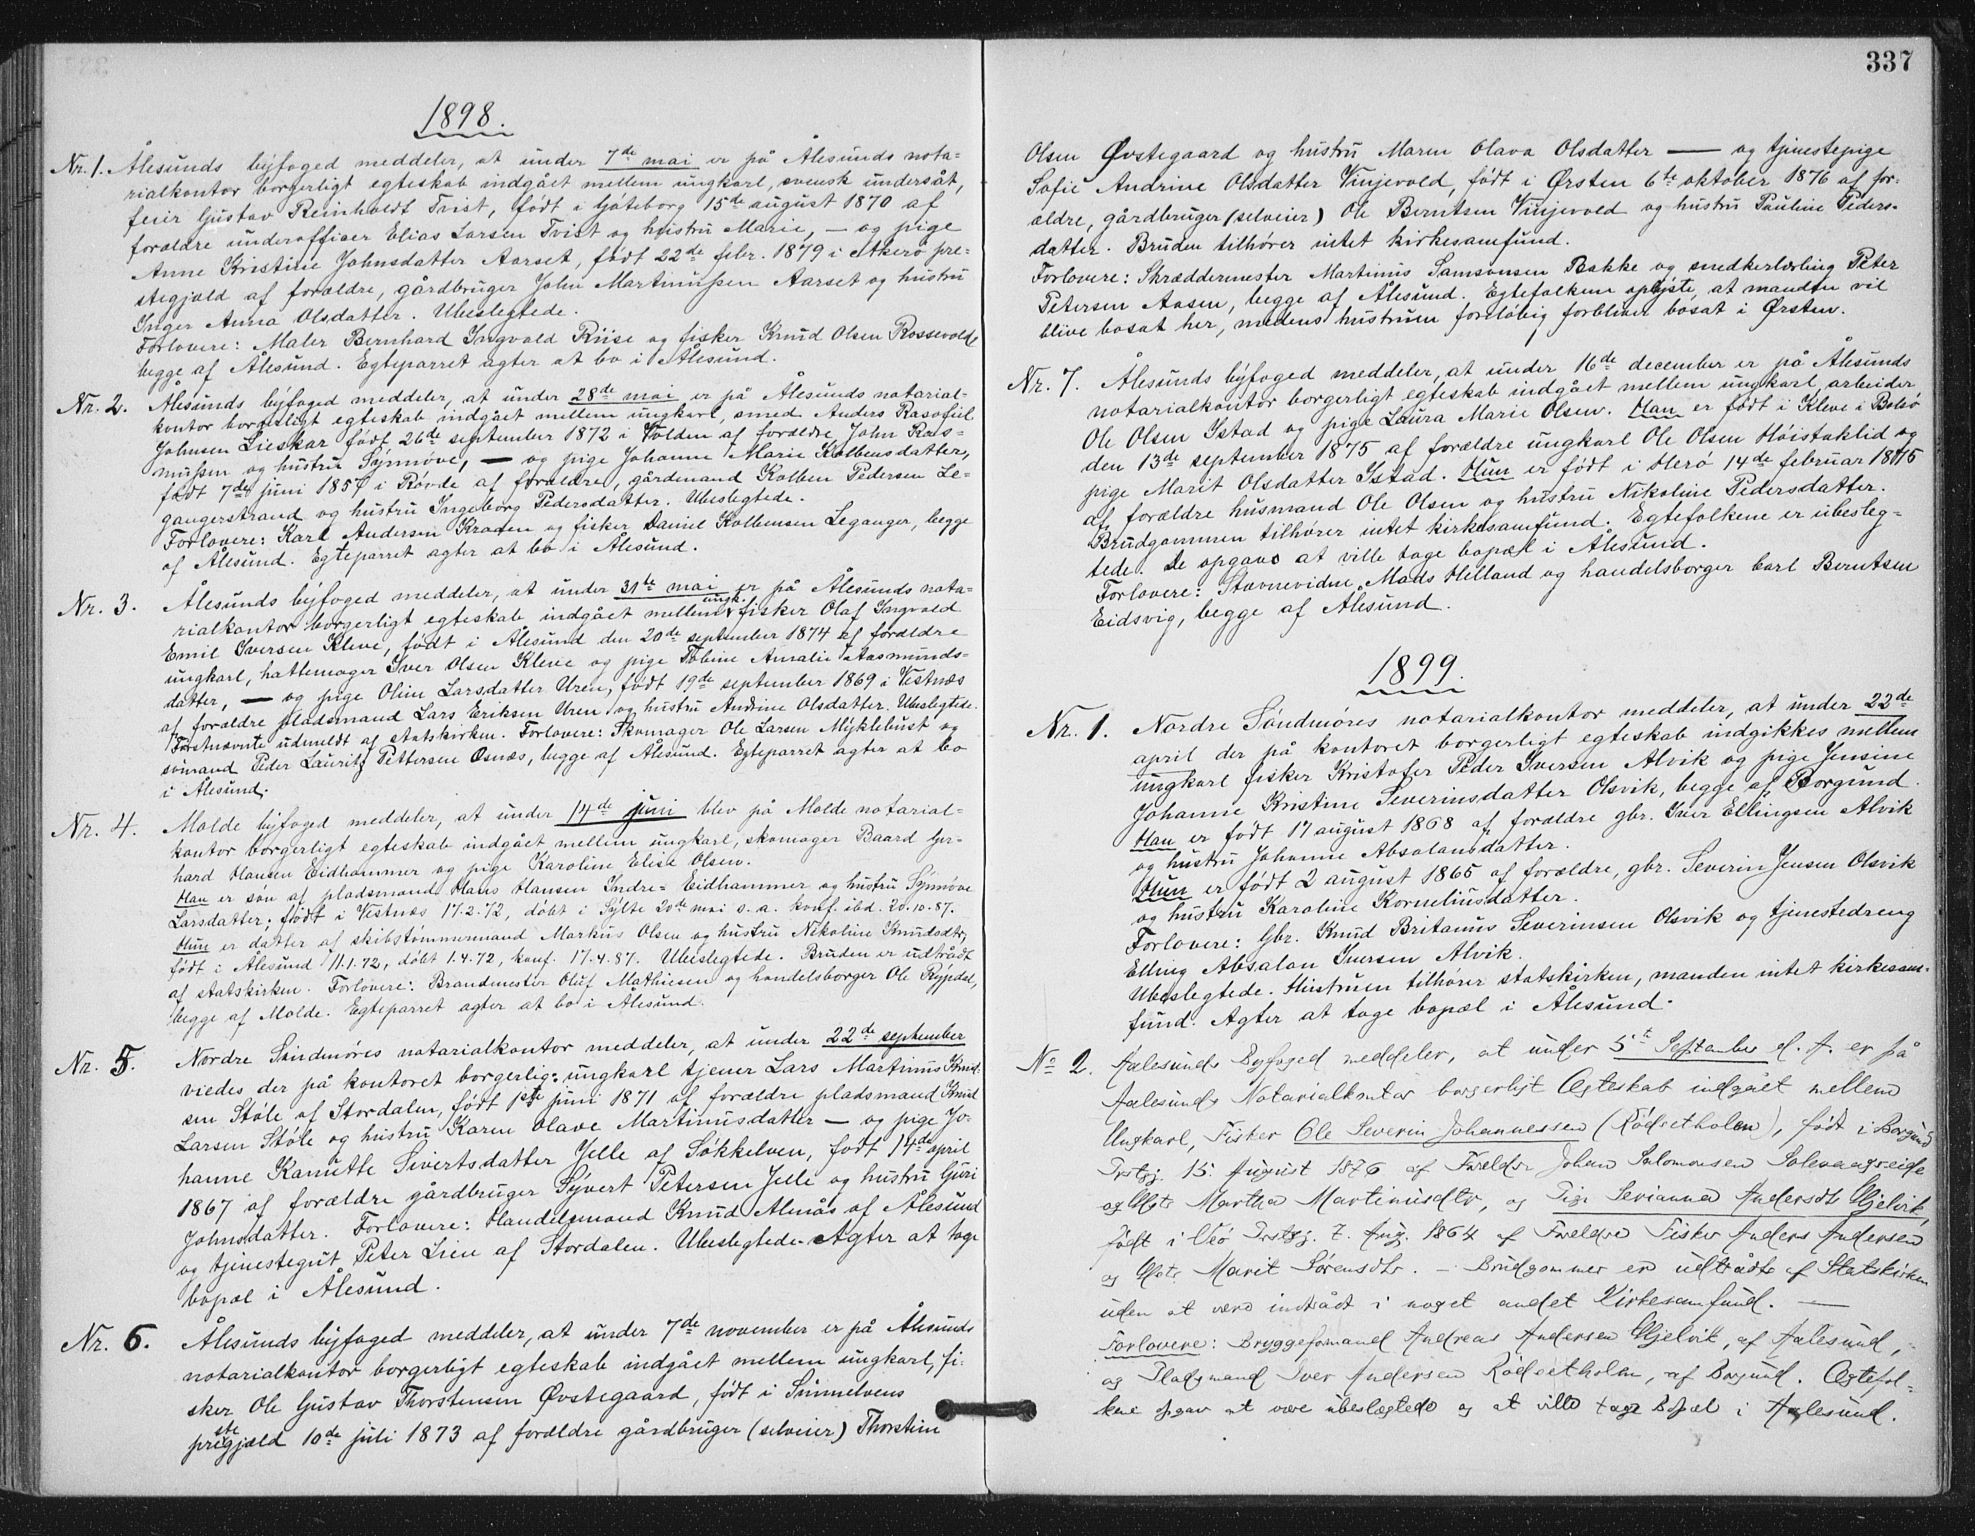 1898.
Nr. 1. Ålesunds byfoged meddeler, at under 7de mai er på Ålesunds nota=
rialkontor borgerligt egteskab indgået mellem ungkarl, svensk undersåt,
feier Gustav Reinholdt Tvist, født i Göteborg 15de august 1870 af
forældre underofficer Elias Larsen Tvist og hustru Marie, — og pige
Anne Kristine Johnsdatter Aarset, født 22de febr. 1879 i Akerø pre=
stegjæld af forældre, gårdbruger John Martinussen Aarset og hustru
Inger Anna Olsdatter. Ubeslegtede.
Forlovere: Maler Bernhard Ingvald Riise og fisker Knud Olsen Rossevold,
begge af Ålesund. Egteparret agter at bo i Ålesund.
Nr. 2. Ålesunds byfoged meddeler, at under 28de mai er på Ålesunds notarial=
kontor borgerligt egteskab indgået mellem ungkarl, smed Anders Rasofiel
Johnsen Lieskar født 26de september 1872 i Volden af forældre John Ras=
mussen og hustru Synnøve, — og pige Johanne Marie Kolbensdatter,
født 7de juni 1857 i Rovde af forældre, gårdmand Kolben Pedersen Le=
gangerstrand og hustru Ingeborg Pedersdatter. Ubeslegtede.
Forlovere: Karl Andersen Kragen og fisker Daniel Kolbensen Leganger, begge
af Ålesund. Egteparret agter at bo i Ålesund.
Nr. 3. Ålesunds byfoged meddeler, at under 31te mai er på Ålesunds nota=
rialkontor borgerligt egteskab indgået mellem ungk. fisker Olaf Ingvald
Emil Iversen Kleve, født i Ålesund den 20de september 1874 af forældre
ungkarl, hattemager Iver Olsen Kleve og pige Tobine Amalie Aasmunds=
datter, — og pige Oline Larsdatter Uren, født 19de september 1869 i Vestnæs
af forældre pladsmand Lars Eriksen Uren og hustru Andrine Olsdatter. Ubeslegtede.
Førstnævnte udmeldt af statskirken. Forlovere: Skomager Ole Larsen Myklebust og
sømand Peder Lauritz Pettersen Osnæs, begge af Ålesund. Egteparret agter at bo
i Ålesund.
Nr. 4. Molde byfoged meddeler, at under 14de juni blev på Molde notarial=
kontor borgerligt egteskab indgået mellem ungkarl, skomager Baard Ger=
hard Hansen Eidhammer og pige Karoline Elise Olsen.
Han er søn af pladsmand Hans Hansen Indre= Eidhammer og hustru Synnøve
Larsdatter; født i Vestnæs 17.2.72, døbt i Sylte 20de mai s. a. konf. ibd. 20.10.87.
Hun er datter af skibstømmermand Markus Olsen og hustru Nikoline Knudsdtr,
født i Ålesund 11.1.72, døbt 1.4.72, konf. 17.4.87. Ubeslegtede. Bruden er udtrådt
af statskirken. Forlovere: Brandmester Oluf Mathiesen og handelsborger Ole Rypdal,
begge af Molde. Egteparret agter at bo i Ålesund.
Nr. 5. Nordre Søndmøres notarialkontor meddeler, at under 22de september
viedes der på kontoret borgerlig: ungkarl tjener Lars Martinus Knud=
sen Støle af Stordalen, født 1ste juni 1871 af forældre pladsmand Knud
Larsen Støle og hustru Karen Olave Martinusdatter — og pige Jo=
hanne Kanutte Sivertsdatter Jelle af Søkkelven, født 14de april
1867 af forældre gårdbruger Syvert Petersen Jelle og hustru Guri
Johnsdatter. Forlovere: Handelsmand Knud Almås af Ålesund
og tjenestegut Peter Lien af Stordalen. Ubeslegtede. Agter at tage
bopæl i Ålesund.
Nr. 6. Ålesunds byfoged meddeler, at under 7de november er på Ålesunds
notarialkontor borgerligt egteskab indgået mellem ungkarl, fi=
sker Ole Gustav Thorstensen Øvstegaard, født i Sunnelvens
prestegjæld 10de juli 1873 af forældre gårdbruger (selveier) Thorstein
337
Olsen Øvstegaard og hustru Maren Olava Olsdatter — og tjenestepige
Sofie Andrine Olsdatter Vinjevold, født i Ørsten 6te oktober 1876 af for=
ældre, gårdbruger (selveier) Ole Berntsen Vinjevold og hustru Pauline Peders=
datter. Bruden tilhører intet kirkesamfund.
Forlovere: Skræddermester Martinus Samsonsen Bakke og snedkerlærling Peter
Petersen Aasen, begge af Ålesund. Egtefolkene oplyste, at manden vil
blive bosat her, medens hustruen foreløbig forbliver bosat i Ørsten.
Nr. 7. Ålesunds byfoged meddeler, at under 16de december er på Ålesunds
notarialkontor borgerligt egteskab indgået mellem ungkarl, arbeider
Ole Olsen Istad og pige Laura Marie Olsen. Han er født i Kleve i Bolsø
den 13de september 1875 af forældre ungkarl Ole Olsen Høistaklid og
pige Marit Olsdatter Istad. Hun er født i Herø 14de februar 1875
af forældre husmand Ole Olsen og hustru Nikoline Pedersdatter.
Brudgommen tilhører intet kirkesamfund. Egtefolkene er ubesleg=
tede. De opgave at ville tage bopæl i Ålesund.
Forlovere: Stevnevidne Mads Helland og handelsborger Carl Berntsen
Eidsvig, begge af Ålesund.
1899.
Nr. 1. Nordre Søndmøres notarialkontor meddeler, at under 22de
april der på kontoret borgerligt egteskab indgikkes mellem
ungkarl fisker Kristofer Peder Iversen Alvik og pige Jensine
Johanne Kristine Severinsdatter Olsvik, begge af Borgund.
Han er født 17 august 1868 af forældre gbr. Iver Ellingsen Alvik
og hustru Johanne Absalonsdatter.
Hun er født 2 august 1865 af forældre, gbr. Severin Jensen Olsvik
og hustru Karoline Korneliusdatter.
Forlovere: Gbr. Knud Britanus Severinsen Olsvik og tjenestedreng
Elling Absalon Iversen Alvik.
Ubeslegtede. Hustruen tilhører statskirken, manden intet kirkesam=
fund. Agter at tage bopæl i Ålesund.
No 2. Aalesunds Byfoged meddeler, at under 5t September d. A. er på
Aalesunds Notarialkontor borgerligt Ægteskab indgået mellem
Ungkarl, Fisker Ole Severin Johannessen (Rødsetholm), født i Borgund
Prstgj. 15 August 1876 af Forældre Johan Salomonsen Solevaagseide
og Hstr Martha Martinusdtr, og Pige Serianna Andersdtr Gjelvik,
født i Veø Prstgj. 7. Aug. 1864 af Forældre Fisker Anders Andersen
og Hstr Marit Sørensdtr. — Brudgommen er udtrådt af Statskirken
uden at være indtrådt i noget andet Kirkesamfund. —
Forlovere: Bryggeformand Andreas Andersen Gjelvik, af Aalesund,
og Pladsmand Iver Andersen Rødsetholm, af Borgund. Ægtefol=
kene opgav at være ubeslægtede og at ville tage Bopæl i Aalesund.